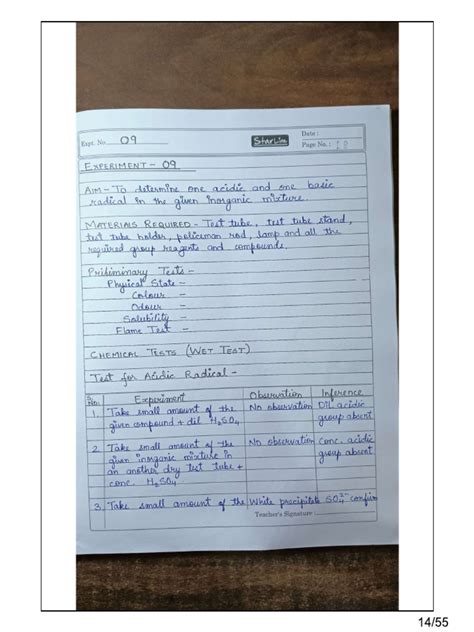 Date :
Expt. No. 09
StarLine
Page No. :
EXPERIMENT - 09
AIM - To determine one acidic and one basic
radical in the given inorganic mixture.
MATERIALS REQUIRED - Test tube, test tube stand,
test tube holder, policeman rod, lamp and all the
required group reagents and compounds.
Priliminary Tests -
Physical State -
Colour -
Odour -
Solubility -
Flame Test -
CHEMICAL TESTS (WET TEST)
Test for Acidic Radical -
S. No. Experiment Observation Inference
1. Take small amount of the No observation Dil acidic
given compound + dil H2SO4 group absent
2. Take small amount of the No observation Conc. acidic
given inorganic mixture in group absent
an another dry test tube +
conc. H2SO4
3. Take small amount of the White precipitate SO4²⁻ confirm
Teacher's Signature
14/55